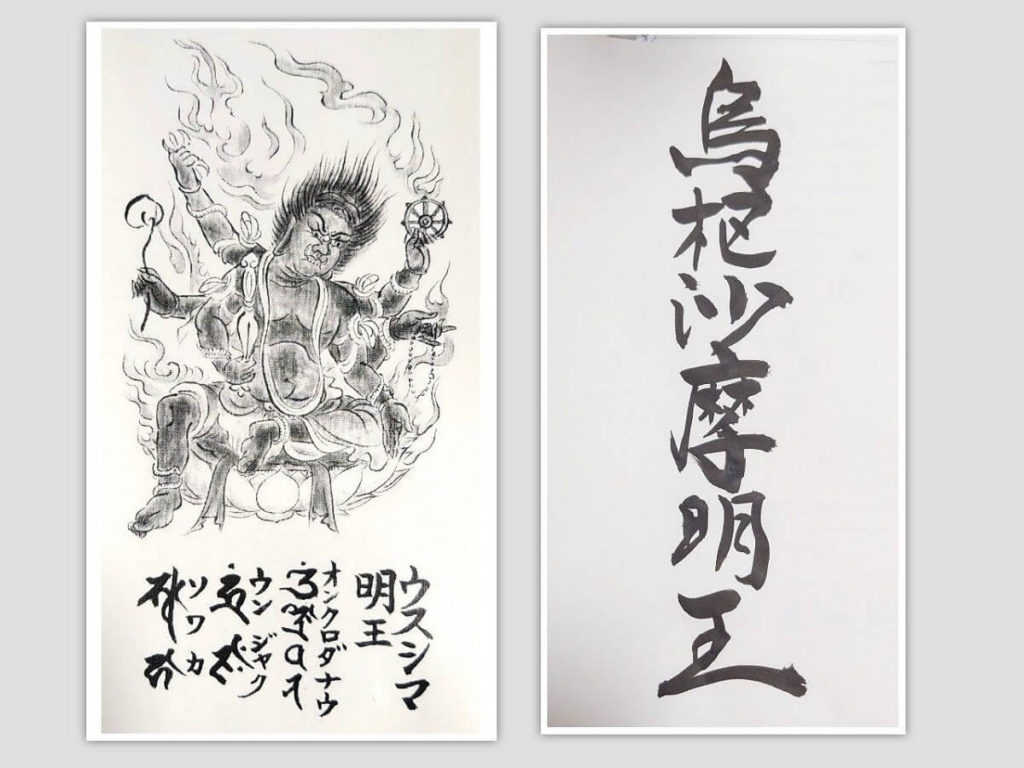 ウスシマ
明王
オンクロダナウ
ウン ジャク
ソワカ
烏枢沙摩明王